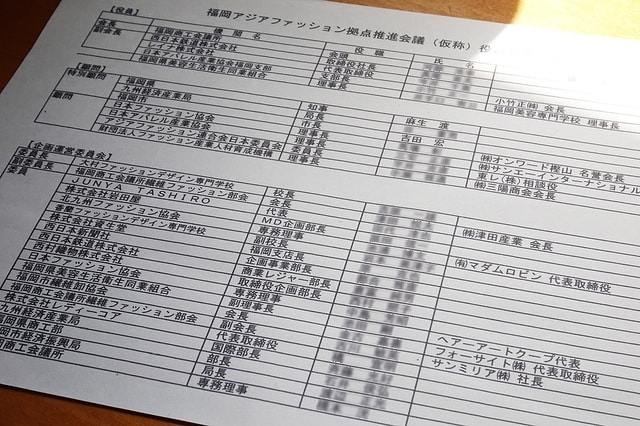 【役員】 福岡アジアファッション拠点推進会議（仮称）役
機関名 役職 氏名
会長 福岡商工会議所 会頭
副会長 西日本鉄道株式会社 取締役社長
レイナ株式会社 代表取締役
日本アパレル産業協会福岡支部 支部長 小竹正㈱ 会長
福岡県美容生活衛生同業組合 理事長 福岡美容専門学校 理事長
【顧問】
特別顧問 福岡県 知事 麻生 渡
九州経済産業局 局長
福岡市 市長 吉田 宏
顧問 日本ファッション協会 理事長 ㈱オンワード樫山 名誉会長
日本アパレル産業協会 理事長 ㈱サンエーインターナショナル
アジアファッション連合会日本委員会 委員長 東レ(株) 相談役
財団法人ファッション産業人材育成機構 理事長 ㈱三陽商会会長
【企画運営委員会】
委員長 大村ファッションデザイン専門学校 校長
副委員長 福岡商工会議所繊維ファッション部会 会長 ㈱津田産業 会長
委員 JUNYA TASHIRO 代表
株式会社岩田屋 MD企画部長
北九州ファッション協会 専務理事 ㈲マダムロビン 代表取締役
香蘭ファッションデザイン専門学校 副校長
株式会社資生堂 福岡支店長
西日本新聞社 企画事業部長
西日本鉄道株式会社 商業レジャー部長
西村織物株式会社 取締役企画部長
日本ファッション協会 専務理事
福岡県美容生活衛生同業組合 副理事長 ヘアーアートクープ代表
福岡市繊維卸協会 会長 フォーサイト㈱ 代表取締役
福岡商工会議所繊維ファッション部会 副会長 サンミリア㈱ 社長
株式会社レディーコア 代表取締役
九州経済産業局 国際部長
福岡県商工部 部長
岡市経済振興局 局長
岡商工会議所 専務理事